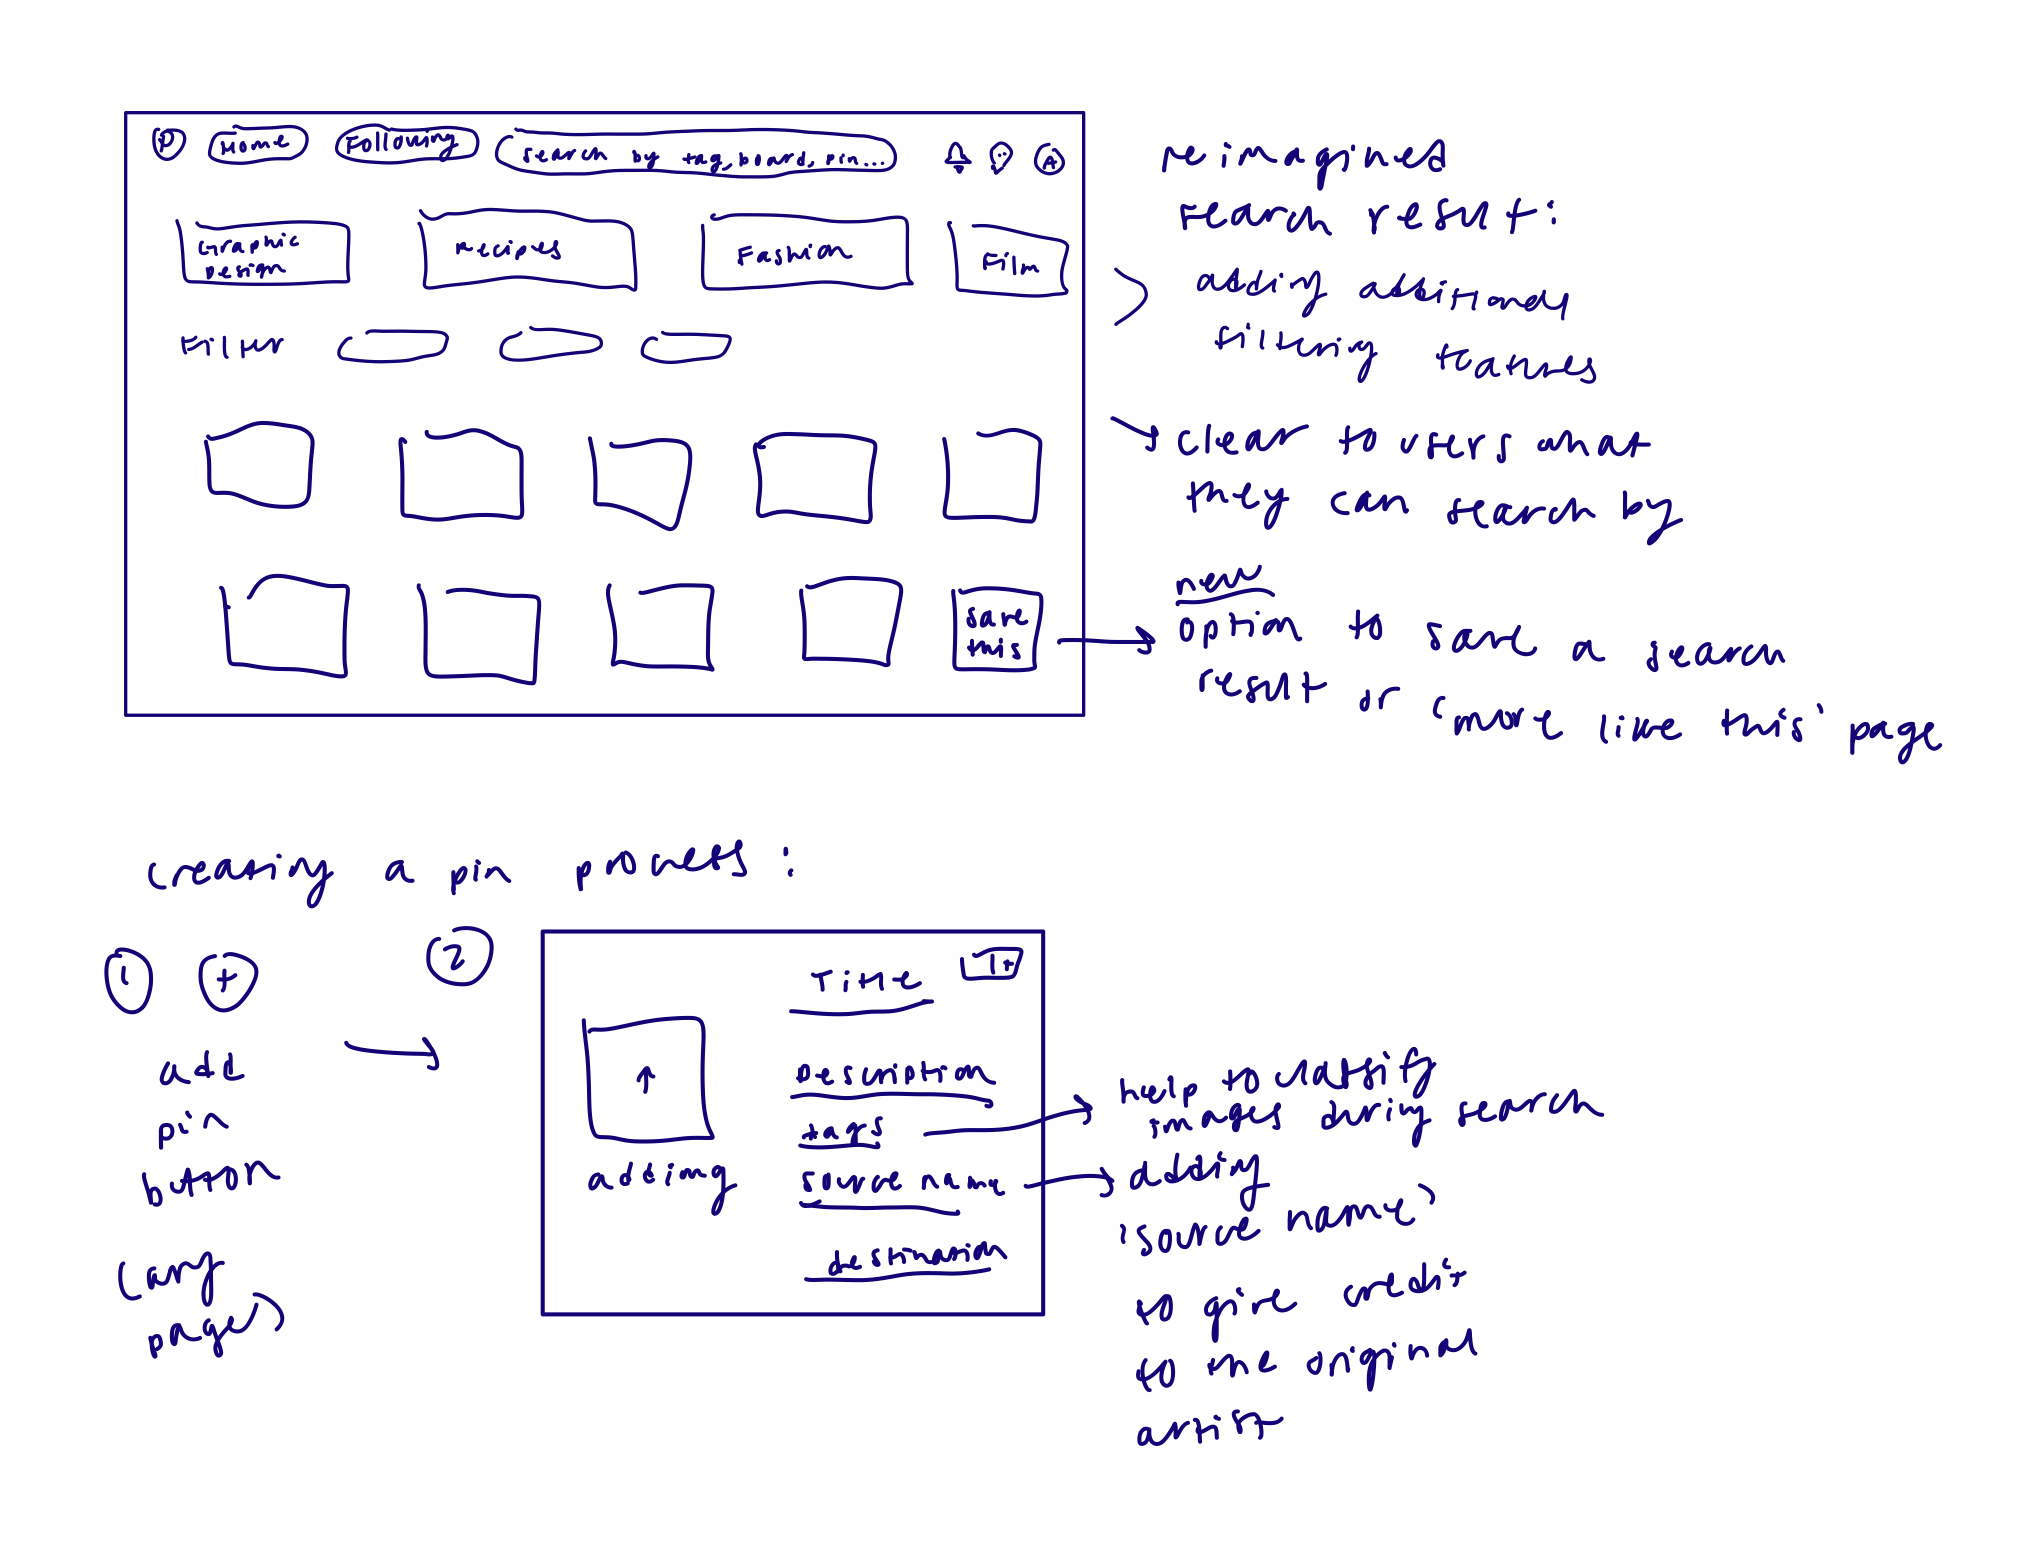 P Home Following search by tag, board, pin... A
Graphic
Design
Recipes
Fashion
Film
Filter
save
this
reimagined
search result:
adding additional
filtering features
clear to users what
they can search by
new
option to save a search
result or 'more like this' page
creating a pin process:
1 +
add
pin
button
(any
page)
2
Title
Description
tags
source name
destination
add img
help to classify
images during search
adding
'source name'
to give credit
to the original
artist